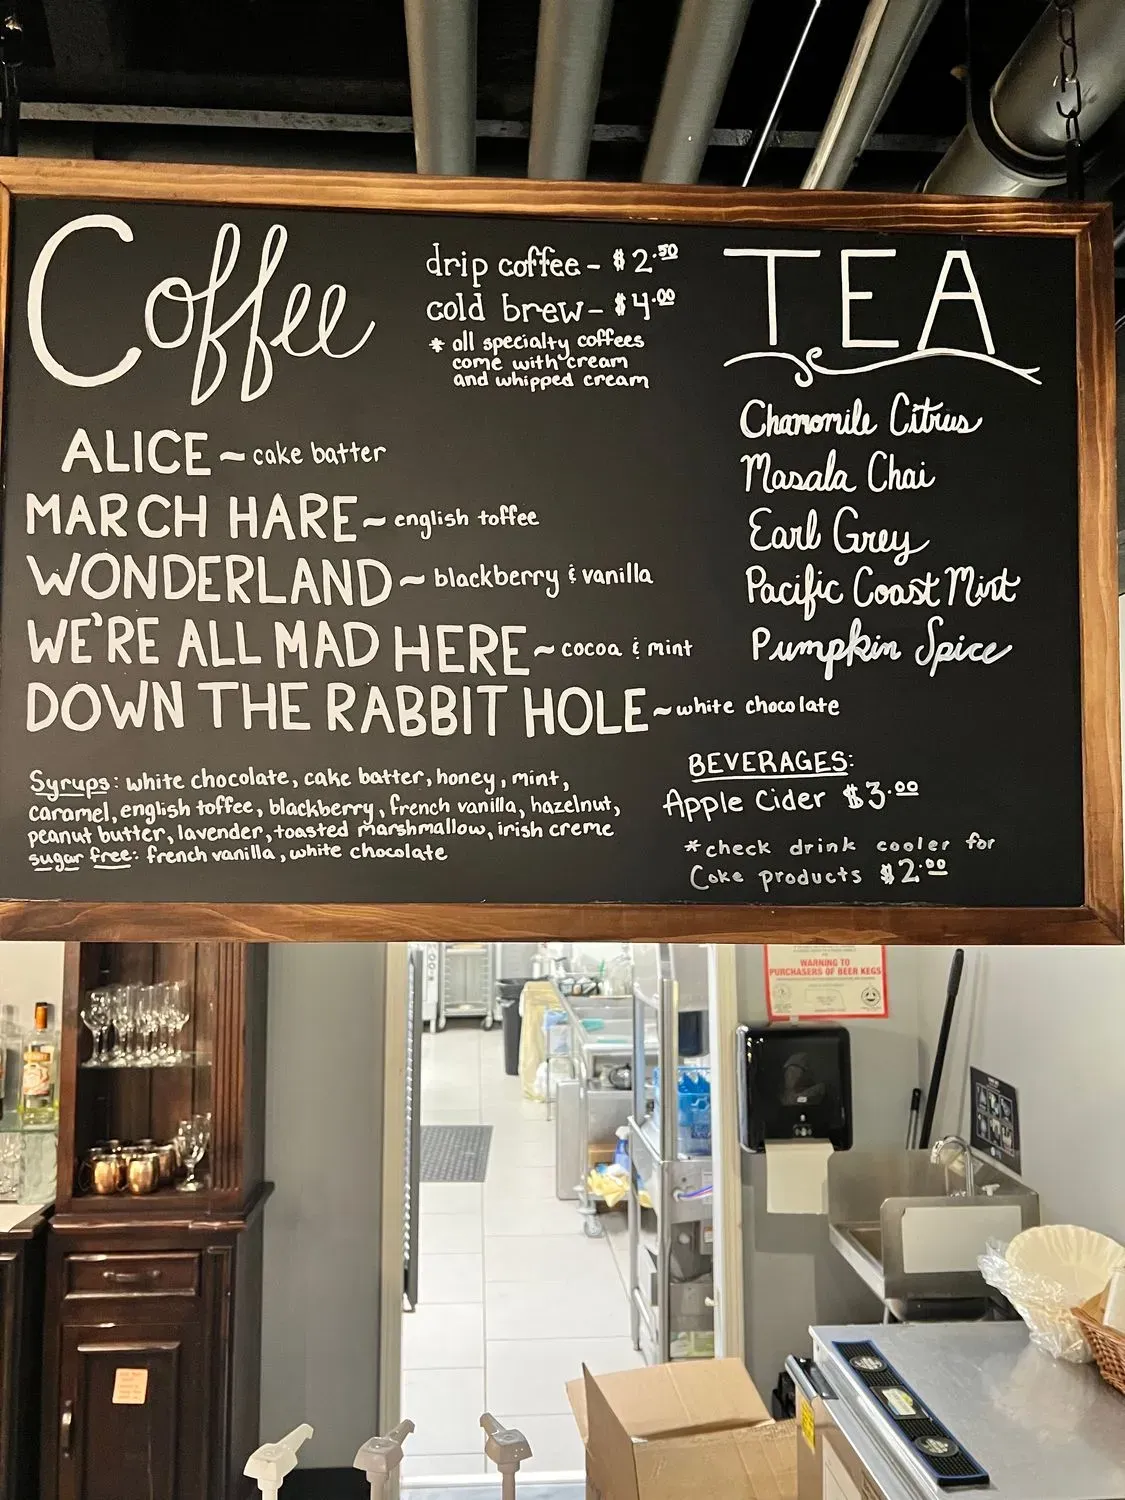 Coffee
drip coffee - $2.50
cold brew - $4.00
* all specialty coffees
come with cream
and whipped cream
ALICE ~ cake batter
MARCH HARE ~ english toffee
WONDERLAND ~ blackberry & vanilla
WE'RE ALL MAD HERE ~ cocoa & mint
DOWN THE RABBIT HOLE ~ white chocolate
Syrups: white chocolate, cake batter, honey, mint,
caramel, english toffee, blackberry, french vanilla, hazelnut,
peanut butter, lavender, toasted marshmallow, irish creme
sugar free: french vanilla, white chocolate
TEA
Chamomile Citrus
Masala Chai
Earl Grey
Pacific Coast Mint
Pumpkin Spice
BEVERAGES:
Apple Cider $3.00
*check drink cooler for
Coke products $2.00
WARNING TO
PURCHASERS OF BEER KEGS